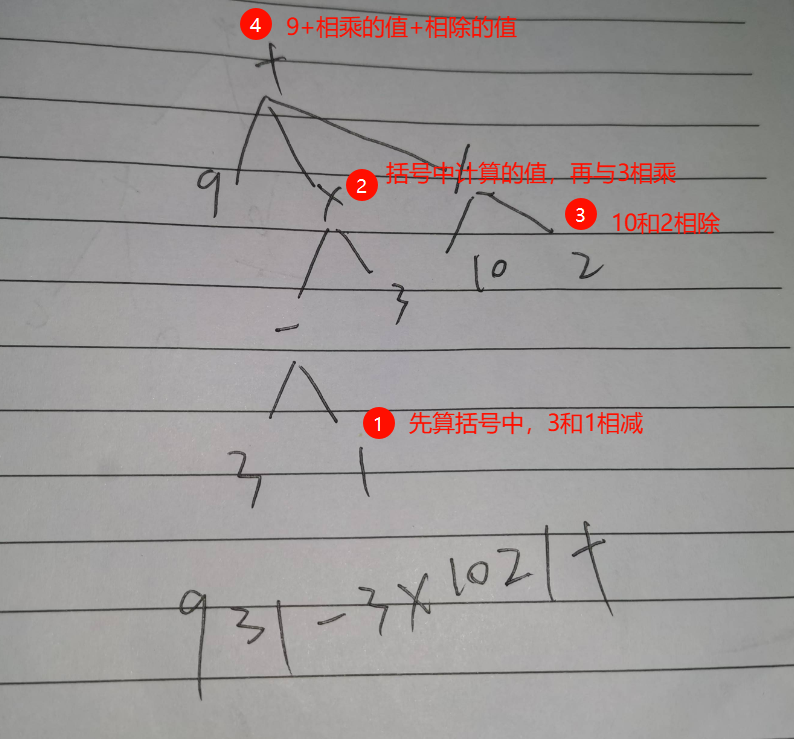 4 9+相乘的值+相除的值
+
9 × 2 括号中计算的值，再与3相乘
/ 3 10和2相除
10 2
3
-
1 先算括号中，3和1相减
3 1
9 3 1 - 3 × 10 2 / +